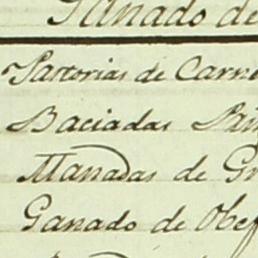 Ganado de
Partorias de Carne
Baciadas Pari
Manadas de Gr
Ganado de Obej